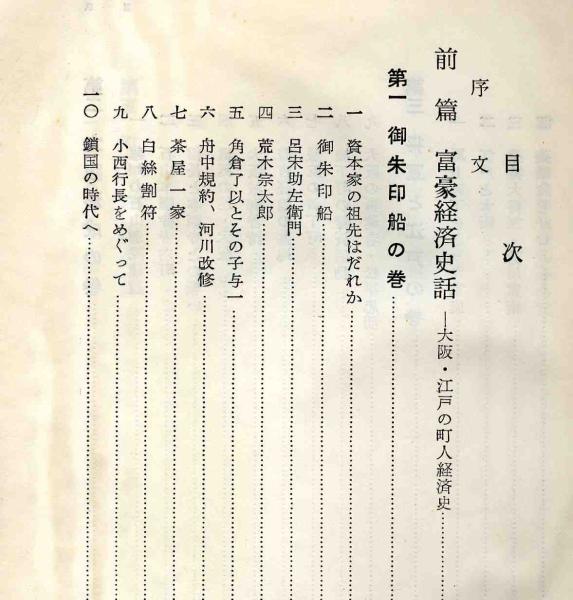 目次
序文
前篇 富豪経済史話―大阪・江戸の町人経済史
第一 御朱印船の巻
一 資本家の祖先はだれか
二 御朱印船
三 呂宋助左衛門
四 荒木宗太郎
五 角倉了以とその子与一
六 舟中規約、河川改修
七 茶屋一家
八 白絲割符
九 小西行長をめぐって
一〇 鎖国の時代へ